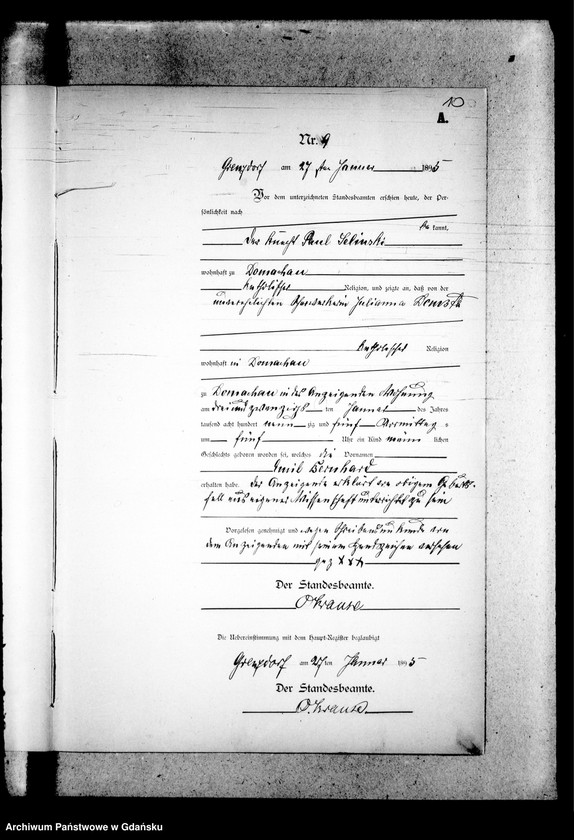 10
A.
Nr. 9
Grenzdorf am 27 ten Januar 1895
Vor dem unterzeichneten Standesbeamten erschien heute, der Per-
sönlichkeit nach
be kannt,
der Knecht Paul Selinski
wohnhaft zu Domachau
katholischer Religion, und zeigte an, daß von der
unverehelichten Julianna
katholischer Religion
wohnhaft in Domachau
zu Domachau in des Anzeigenden Wohnung
am dreiundzwanzigsten ten Januar des Jahres
tausend acht hundert neun zig und fünf Vormittag s
um fünf Uhr ein Kind männ lichen
Geschlechts geboren worden sei, welches die Vornamen
Emil Bernhard
erhalten habe. Der Anzeigende erklärt von obigem Geburts-
fall aus eigener Wissenschaft unterrichtet zu sein
Vorgelesen genehmigt und wegen Schreibensunkunde von
dem Anzeigenden mit seinem Handzeichen versehen
gez. XXX
Der Standesbeamte.
O Krause
Die Uebereinstimmung mit dem Haupt-Register beglaubigt
Grenzdorf am 27 ten Januar 1895
Der Standesbeamte.
O. Krause.
Archiwum Państwowe w Gdańsku